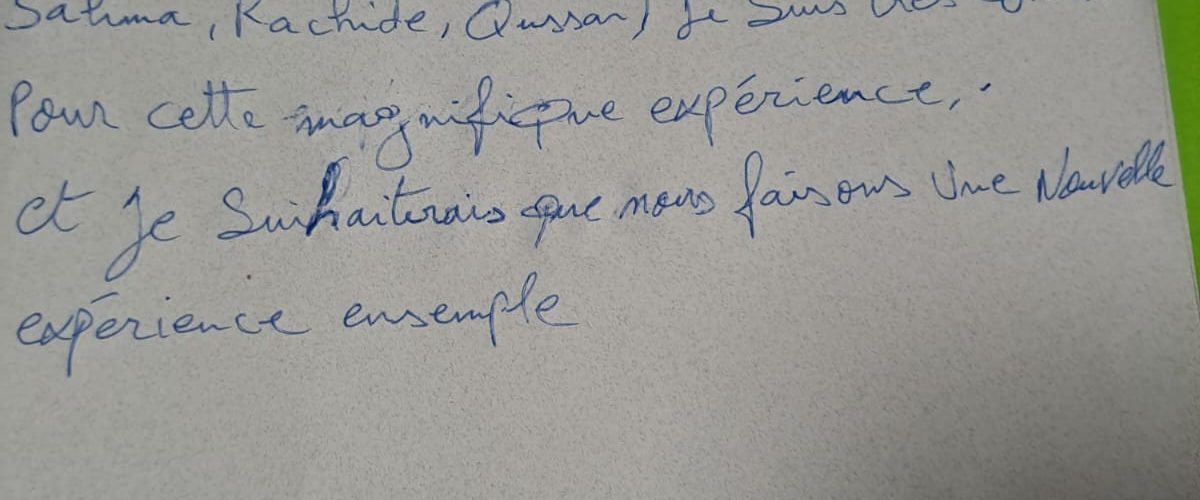 Salima, Rachide, Qussar, je suis très
Pour cette magnifique expérience,.
et je Suihaiterais que nous faisons Une Nouvelle
expérience ensemple